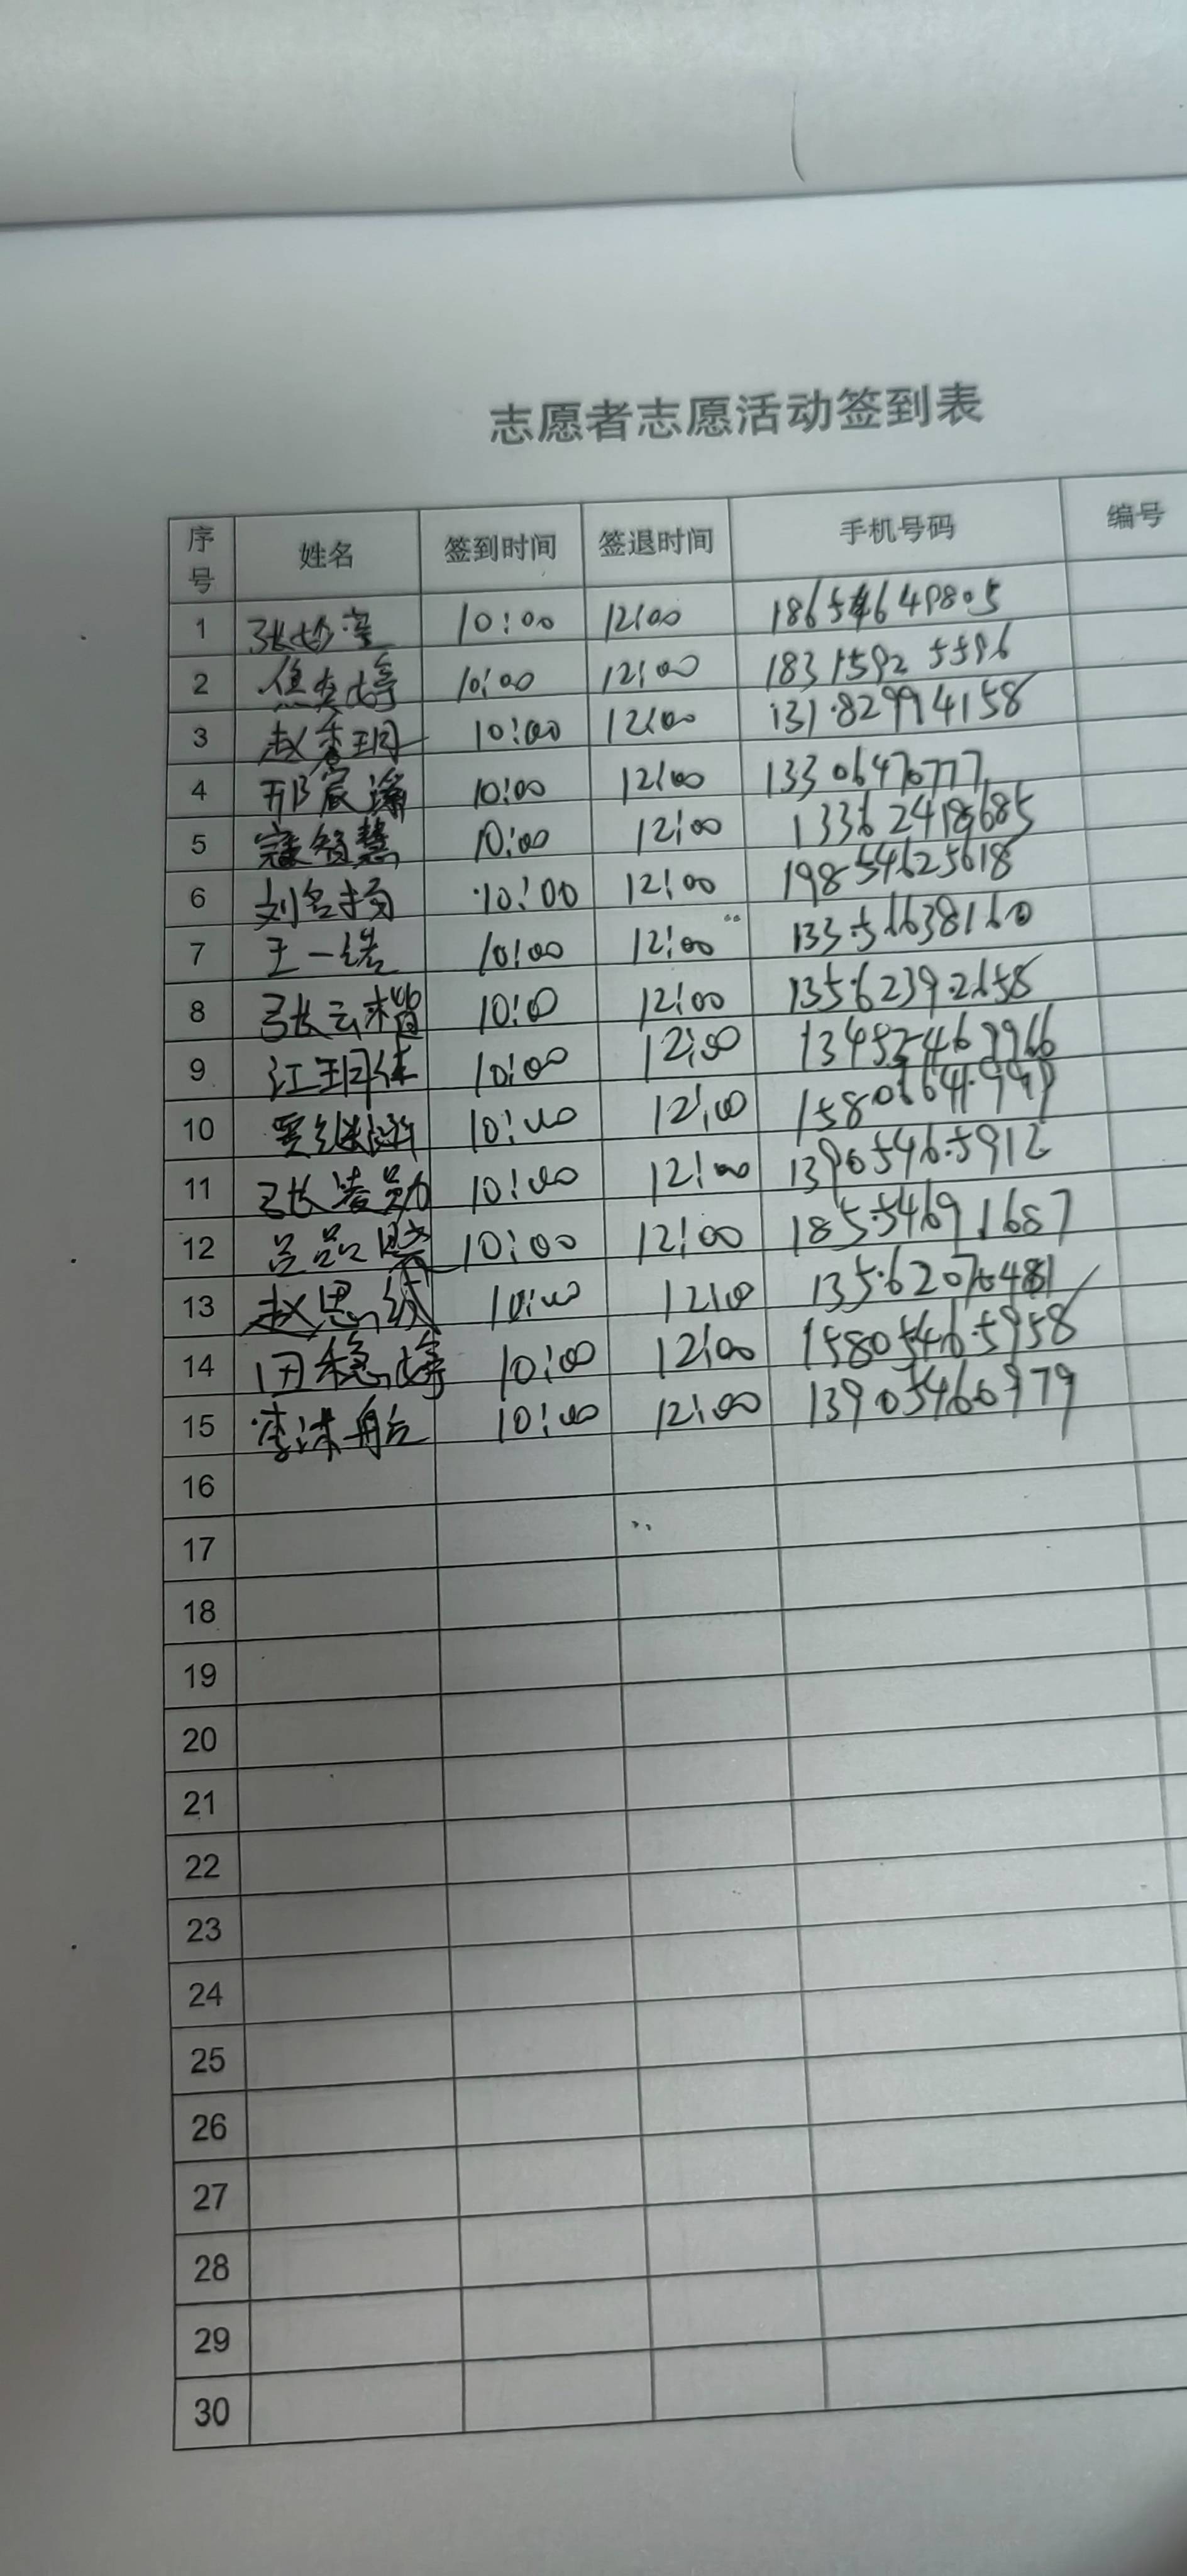 志愿者志愿活动签到表
序号 姓名 签到时间 签退时间 手机号码 编号
1 10:00 12:00
2 焦奕婷 10:00 12:00 18315925596
3 赵 10:00 12:00 13182994158
4 邢宸 10:00 12:00 13306470777
5 寇智慧 10:00 12:00
6 刘名扬 10:00 12:00 19854625618
7 王一诺 10:00 12:00
8 张云楷 10:00 12:00 13562392658
9 江玥 10:00 12:00
10 10:00 12:00
11 张凌勋 10:00 12:00 13905465912
12 吕品 10:00 12:00 18554691687
13 赵思 10:00 12:00
14 田稳婷 10:00 12:00 15805465958
15 李沫 10:00 12:00 13905460979
16
17
18
19
20
21
22
23
24
25
26
27
28
29
30